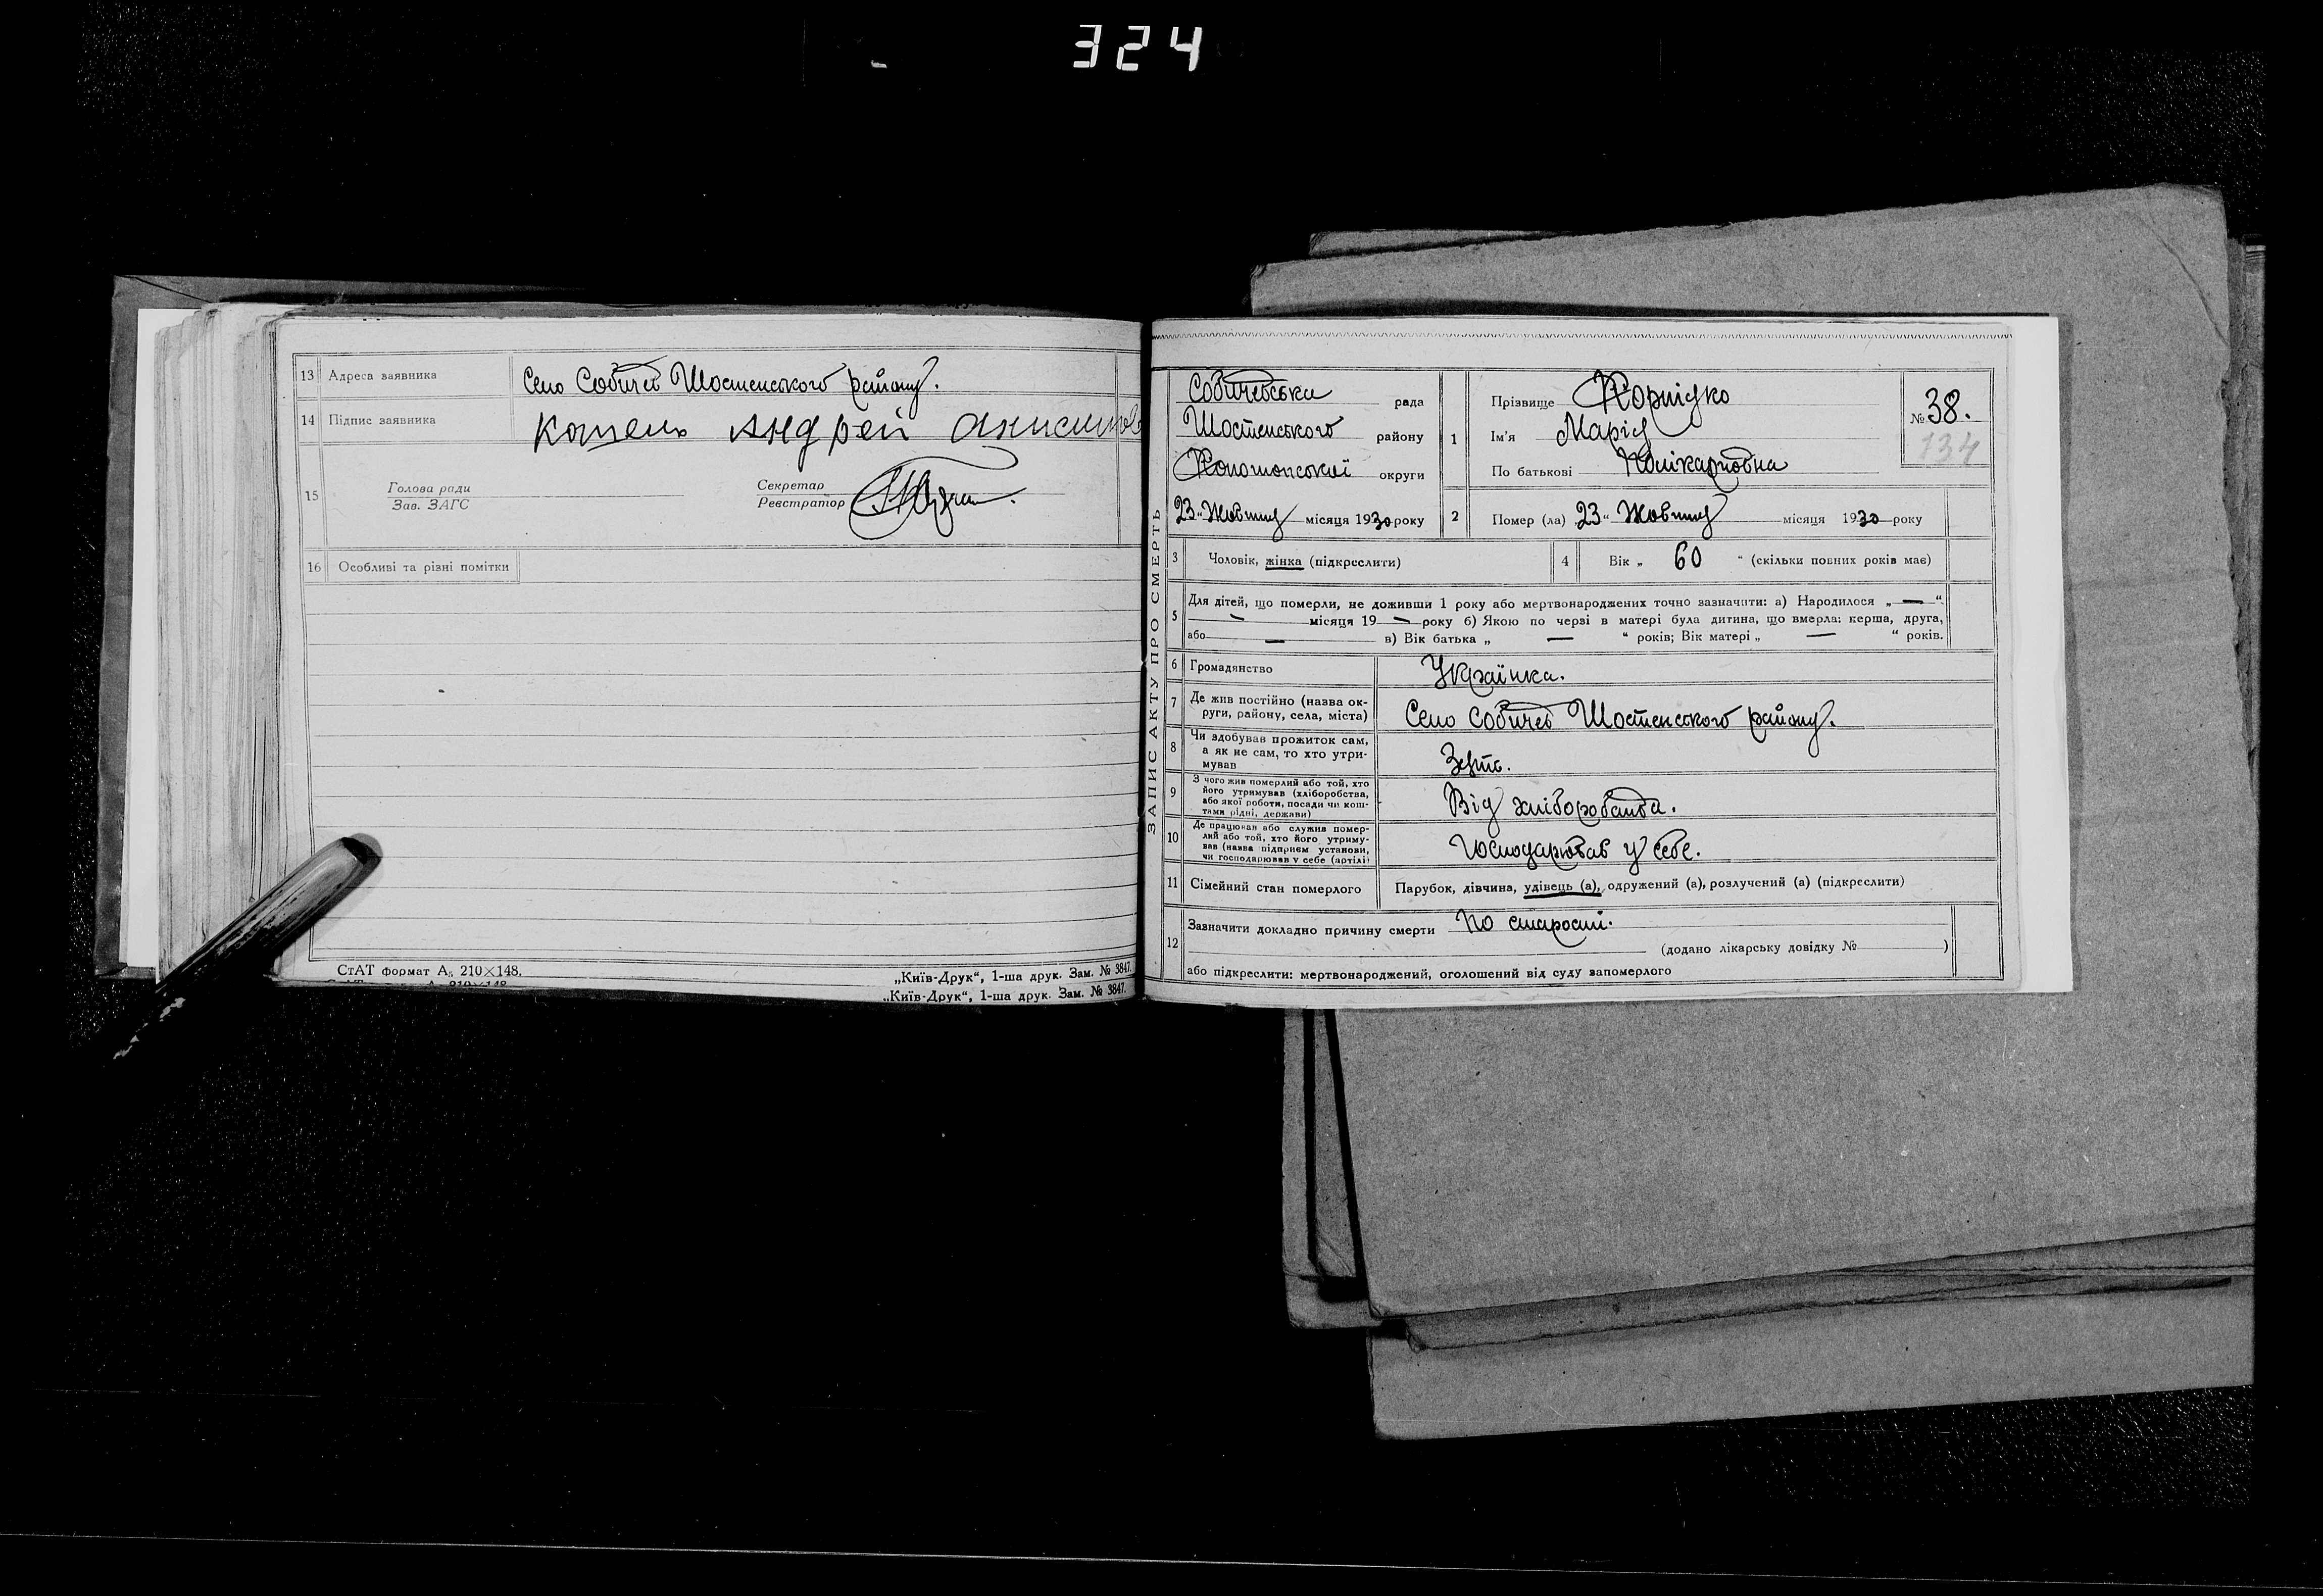 324
13 Адреса заявника Село Собичев Шостенського району.
14 Підпис заявника Котень Андрей
15 Голова ради Секретар
Зав. ЗАГС Реєстратор
16 Особливі та різні помітки
СтАТ формат А₅ 210×148.
„Київ-Друк“, 1-ша друк. Зам. № 3847.
„Київ-Друк“, 1-ша друк. Зам. № 3847.
ЗАПИС АКТУ ПРО СМЕРТЬ
Собичевська рада
Шостенського району
Конотопської округи
23 „Жовтня місяця 1930 року
1 Прізвище
Ім'я Марія
По батькові Полікарповна
№ 38.
134
2 Помер (ла) „23“ Жовтня місяця 1930 року
3 Чоловік, жінка (підкреслити)
4 Вік „ 60 “ (скільки повних років має)
5 Для дітей, що померли, не доживши 1 року або мертвонароджених точно зазначити: а) Народилося „ — “
— місяця 19 — року б) Якою по черзі в матері була дитина, що вмерла: перша, друга,
або — в) Вік батька „ — “ років; Вік матері „ — “ років.
6 Громадянство Українка.
7 Де жив постійно (назва округи, району, села, міста) Село Собичев Шостенського району.
8 Чи здобував прожиток сам,
а як не сам, то хто утримував
9 З чого жив померлий або той, хто
його утримував (хліборобства,
або якої роботи, посади чи коштами рідні, держави) Від хліборобства.
10 Де працював або служив померлий або той, хто його утримував (назва підприєм установи,
чи господарював у себе (артілі) Господарював у себе.
11 Сімейний стан померлого Парубок, дівчина, удівець (а), одружений (а), розлучений (а) (підкреслити)
12 Зазначити докладно причину смерти По старості.
(додано лікарську довідку № )
або підкреслити: мертвонароджений, оголошений від суду запомерлого